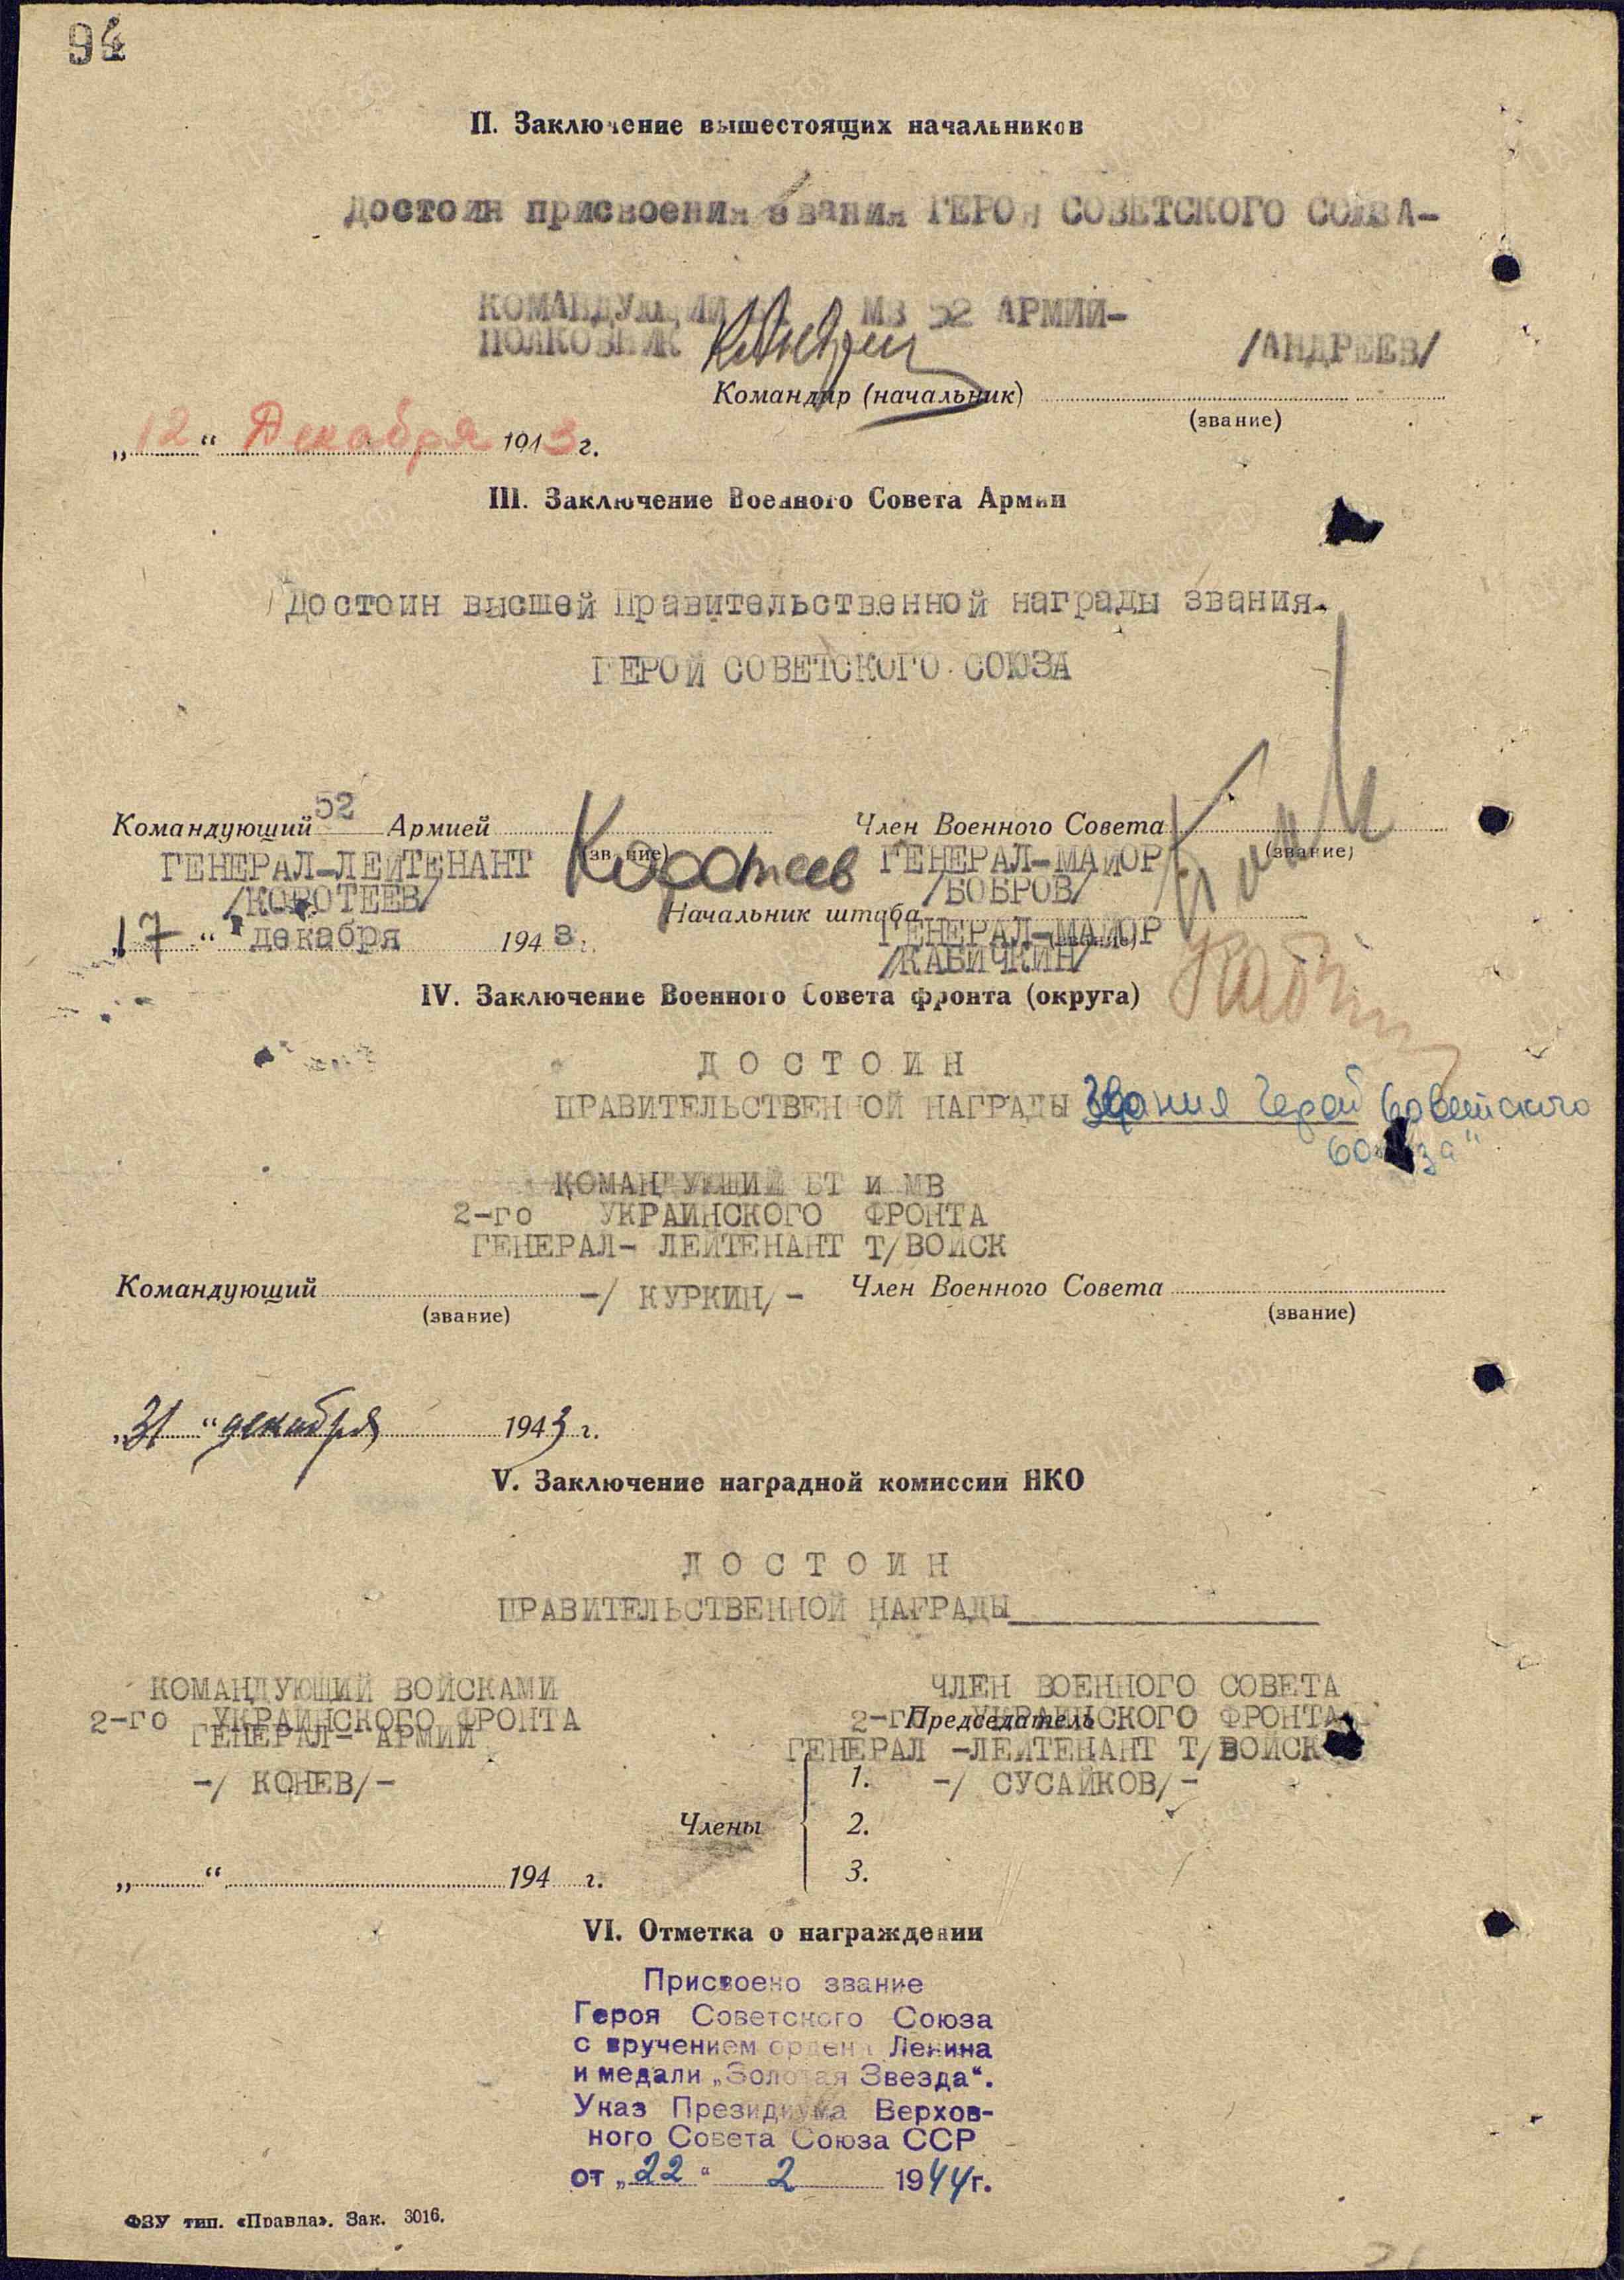 94
II. Заключение вышестоящих начальников
Достоин присвоения звания ГЕРОЯ СОВЕТСКОГО СОЮЗА-
КОМАНДУЮЩИЙ БТ МВ 52 АРМИИ-
ПОЛКОВНИК /АНДРЕЕВ/
Командир (начальник)
(звание)
„12“ Декабря 1943 г.
III. Заключение Военного Совета Армии
Достоин высшей Правительственной награды звания-
ГЕРОЙ СОВЕТСКОГО СОЮЗА
Командующий 52 Армией Член Военного Совета
(звание) (звание)
ГЕНЕРАЛ-ЛЕЙТЕНАНТ Коротеев ГЕНЕРАЛ-МАЙОР
/КОРОТЕЕВ/ /БОБРОВ/
Начальник штаба
„17“ декабря 1943 г. ГЕНЕРАЛ-МАЙОР
(звание)
/КАБИЧКИН/
IV. Заключение Военного Совета фронта (округа)
ДОСТОИН
ПРАВИТЕЛЬСТВЕННОЙ НАГРАДЫ Звания Герой Советского
Союза"
КОМАНДУЮЩИЙ БТ и МВ
2-го УКРАИНСКОГО ФРОНТА
ГЕНЕРАЛ- ЛЕЙТЕНАНТ Т/ВОЙСК
Командующий -/ КУРКИН/- Член Военного Совета
(звание) (звание)
„31“ декабря 1943 г.
V. Заключение наградной комиссии НКО
ДОСТОИН
ПРАВИТЕЛЬСТВЕННОЙ НАГРАДЫ
КОМАНДУЮЩИЙ ВОЙСКАМИ ЧЛЕН ВОЕННОГО СОВЕТА
2-го УКРАИНСКОГО ФРОНТА 2-го УКРАИНСКОГО ФРОНТА
Председатель
ГЕНЕРАЛ- АРМИИ ГЕНЕРАЛ -ЛЕЙТЕНАНТ Т/ВОЙСК
-/ КОНЕВ/- 1. -/ СУСАЙКОВ/-
Члены 2.
3.
„ “ 194 г.
VI. Отметка о награждении
Присвоено звание
Героя Советского Союза
с вручением ордена Ленина
и медали „Золотая Звезда“.
Указ Президиума Верхов-
ного Совета Союза ССР
от „22“ 2 1944г.
ФЗУ тип. «Правда». Зак. 3016.